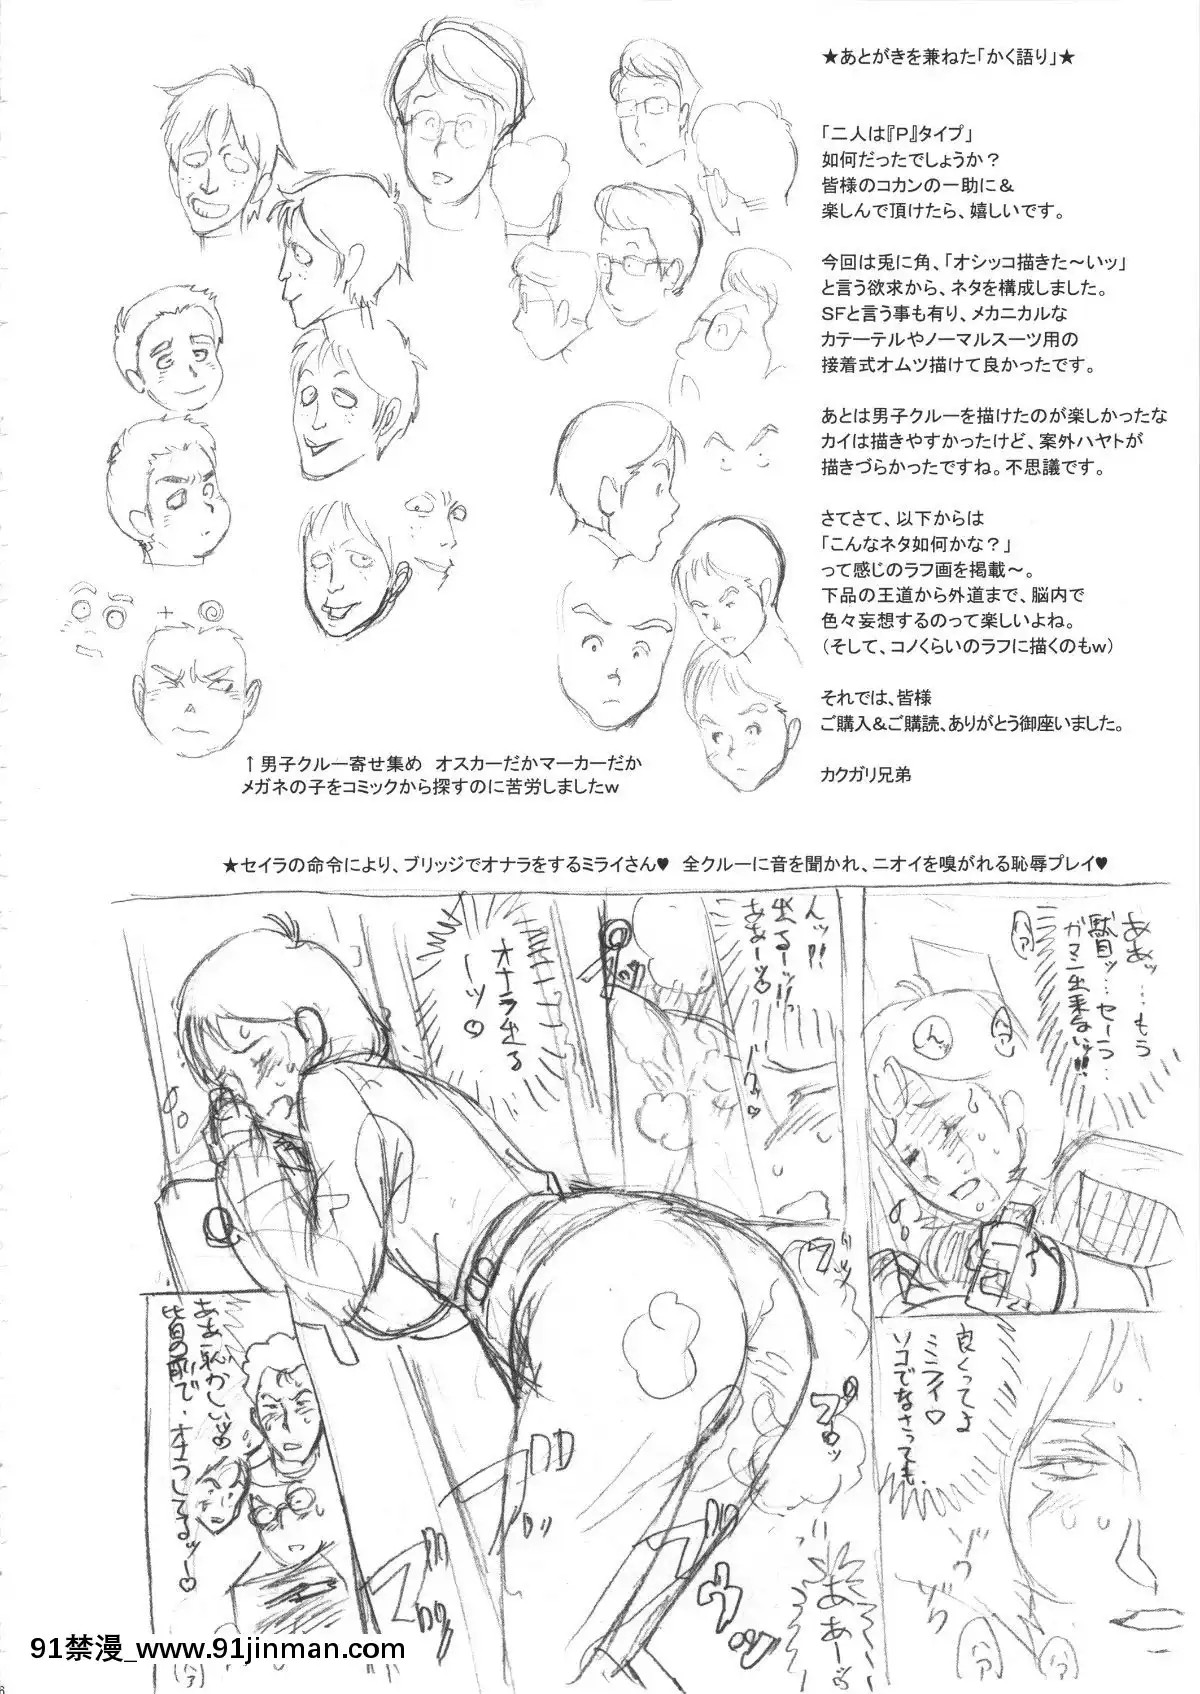 ★あとがきを兼ねた「かく語り」★
「二人は『Ｐ』タイプ」
如何だったでしょうか？
皆様のコカンの一助に＆
楽しんで頂けたら、嬉しいです。
今回は兎に角、「オシッコ描きた～いッ」
と言う欲求から、ネタを構成しました。
ＳＦと言う事も有り、メカニカルな
カテーテルやノーマルスーツ用の
接着式オムツ描けて良かったです。
あとは男子クルーを描けたのが楽しかったな
カイは描きやすかったけど、案外ハヤトが
描きづらかったですね。不思議です。
さてさて、以下からは
「こんなネタ如何かな？」
って感じのラフ画を掲載～。
下品の王道から外道まで、脳内で
色々妄想するのって楽しいよね。
（そして、コノくらいのラフに描くのもｗ）
それでは、皆様
ご購入＆ご購読、ありがとう御座いました。
カクガリ兄弟
↑男子クルー寄せ集め　オスカーだかマーカーだか
メガネの子をコミックから探すのに苦労しましたｗ
★セイラの命令により、ブリッジでオナラをするミライさん♥　全クルーに音を聞かれ、ニオイを嗅がれる恥辱プレイ♥
ああッ…もう
駄目ッ…セーラ…
ガマン出来ないッ!!!
ん…
良くってよ
ミライ♡
ソコでなさっても
ゾク
ゾク
んッ!!
出るーッ!!
ああーッ♡
オナラ出る
ーッ♡
ああーッ
ああ恥かしいッ
皆の前で・オナラしてるッー♡
91禁漫_www.91jinman.com